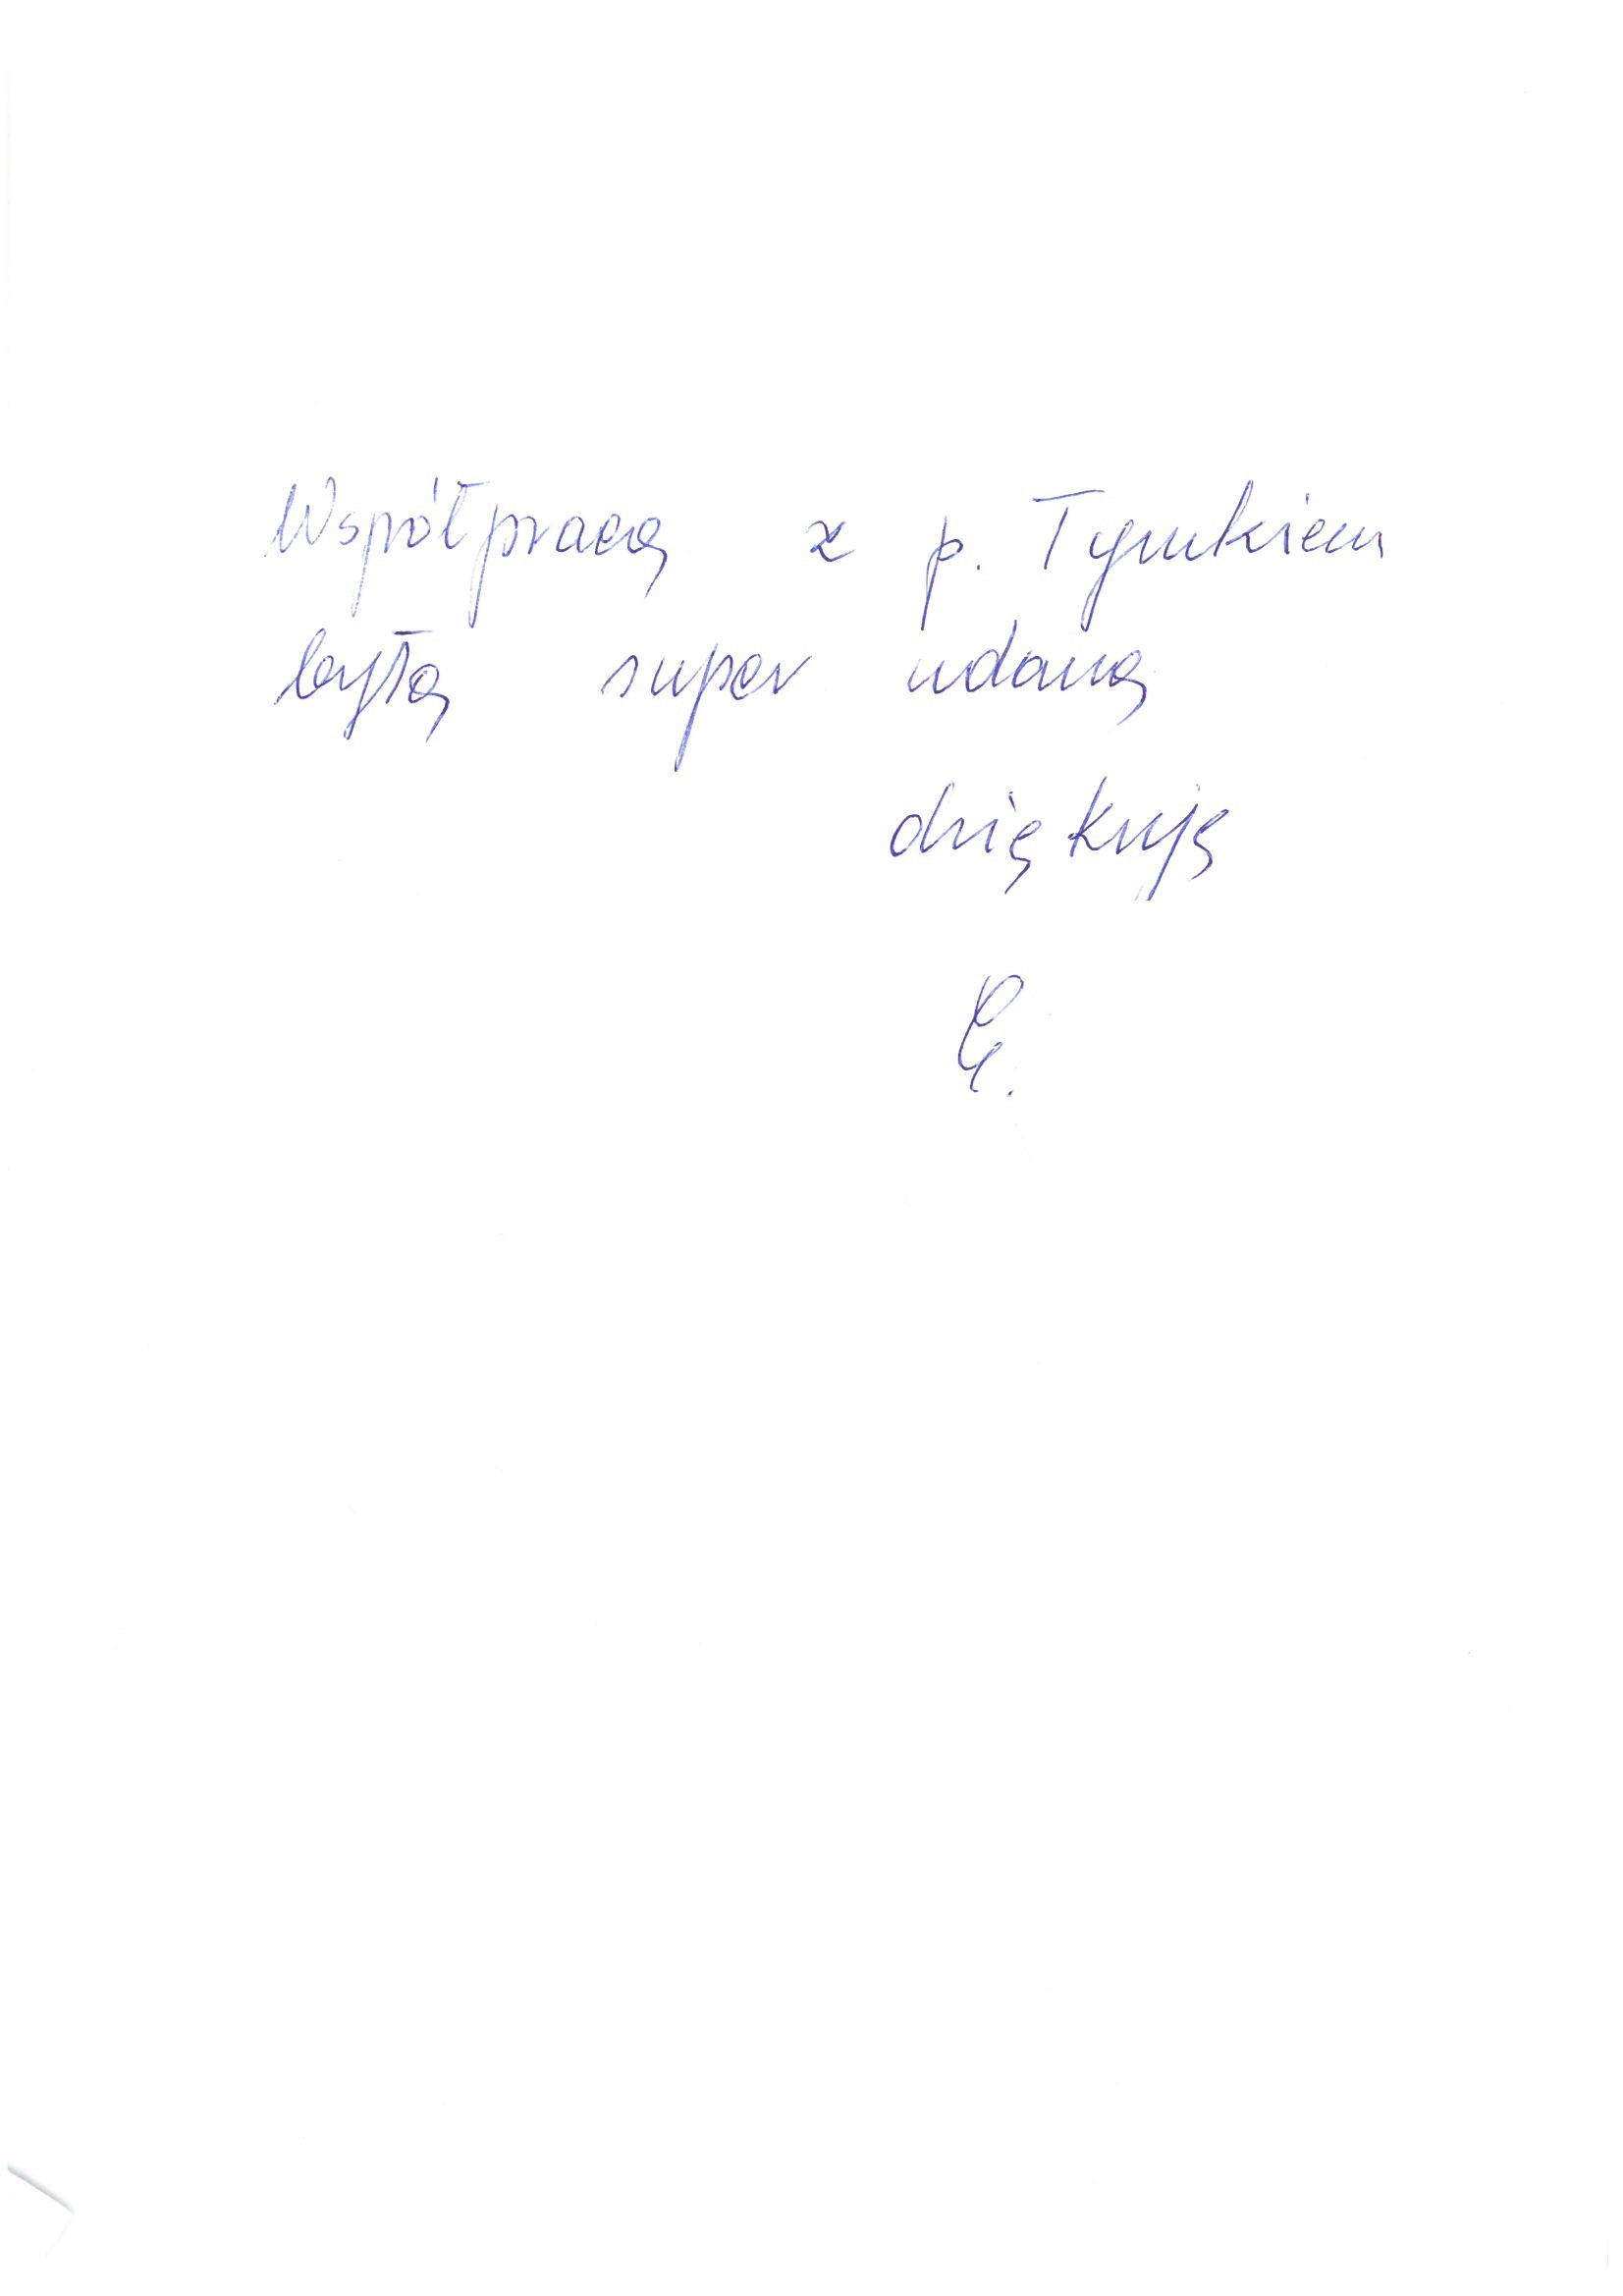 Współpracą z p. Tymkiem
byłą super udaną
dziękuję